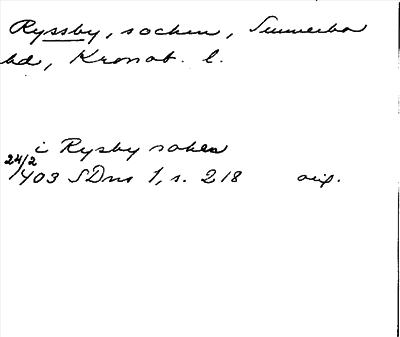 Ryssby, socken, Sunnerbo
hd, Kronob. l.
i Rysby soken
24/2
1403 SDns 1, s. 218 orig.